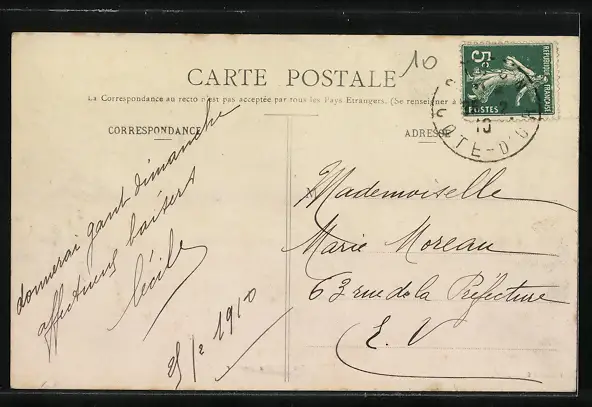 CARTE POSTALE
La Correspondance au recto n'est pas acceptée par tous les Pays Etrangers. (Se renseigner à
CORRESPONDANCE
donnerai gant dimanche
affectueux baisers
Cécile
25/2 1910
ADRESSE
10
RÉPUBLIQUE FRANÇAISE
5c
POSTES
10
COTE-D'OR
Mademoiselle
Marie Moreau
63 rue de la Préfecture
E. V